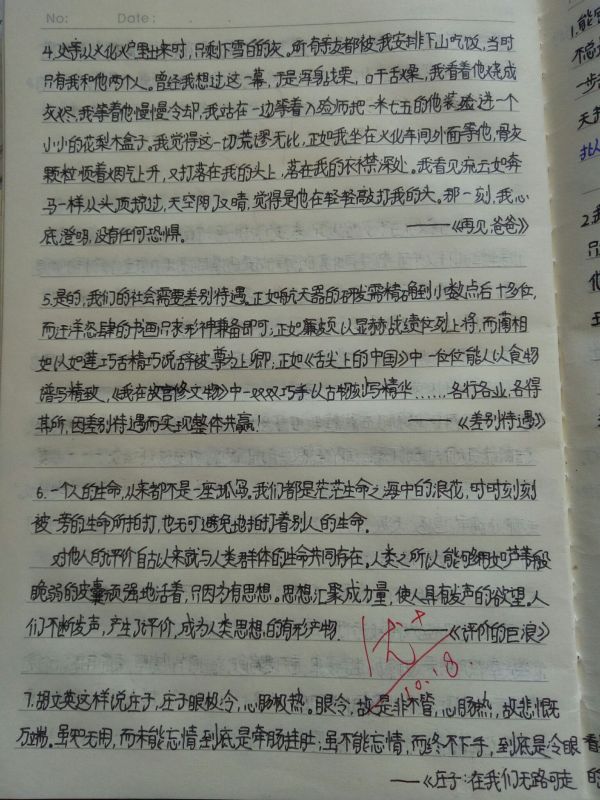 No:
Date:
4.父亲从火化炉里出来时，只剩下雪白的灰。所有亲友都被我安排下山吃饭，当时
只有我和他两个人。曾经我想过这一幕，于是浑身战栗，口干舌燥。我看着他烧成
灰烬，我等着他慢慢冷却，我站在一边等着入殓师把一米七五的他装殓进一个
小小的花梨木盒子。我觉得这一切荒谬无比，正如我坐在火化车间外面等他，骨灰
颗粒顺着烟气上升，又打落在我的头上，落在我的衣襟深处。我看见流云如奔
马一样从头顶掠过，天空阴了又晴，觉得是他在轻轻敲打我的头。那一刻，我心
底澄明，没有任何恐惧。 ——《再见，爸爸》
5.是的，我们的社会需要差别待遇。正如航天器的研发需精确到小数点后十多位，
而汪洋恣肆的书画只求形神兼备即可；正如廉颇以显赫战绩位列上将，而蔺相
如以如莲巧舌精巧说辞被尊为上卿；正如《舌尖上的中国》中一位位能人以食物
谱写精致，《我在故宫修文物》中一双双巧手以古物刻写精华……各行各业，各得
其所，因差别待遇而实现整体共赢！ ——《差别待遇》
6.一个人的生命，从来都不是一座孤岛。我们都是茫茫生命之海中的浪花，时时刻刻
被一旁的生命所拍打，也无可避免地拍打着别人的生命。
对他人的评价自古以来就与人类群体的生命共同存在，人类之所以能够拥如芦苇般
脆弱的皮囊顽强地活着，只因为有思想。思想汇聚成力量，使人具有发声的欲望。人
们不断发声，产生了评价，成为人类思想的有形产物. ——《评价的巨浪》
优+
10.18.
7.胡文英这样说庄子，庄子眼极冷，心肠极热。眼冷，故是非不管，心肠热，故悲慨
万端。虽知无用，而未能忘情，到底是牵肠挂肚；虽不能忘情，而终不下手，到底是冷眼看
——《庄子：在我们无路可走的
1.能
不
一
天
2.
只
他